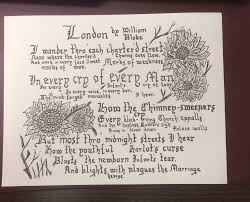 London by William
Blake
I wander thro each charter'd street
Near where the charter'd Thames does flow,
And mark in every face I meet Marks of weakness
marks of woe
In every cry of every Man
In every Infants cry of fear
In every voice in every ban
The mind-forg'd manacles I hear
How the Chimney-sweepers
cry
Every black'ning Church appalls
And the hapless Soldiers sigh
Runs in blood down Palace walls
But most thro midnight streets I hear
How the youthful Harlots curse
Blasts the newborn Infants tear
And blights with plagues the Marriage
hearse